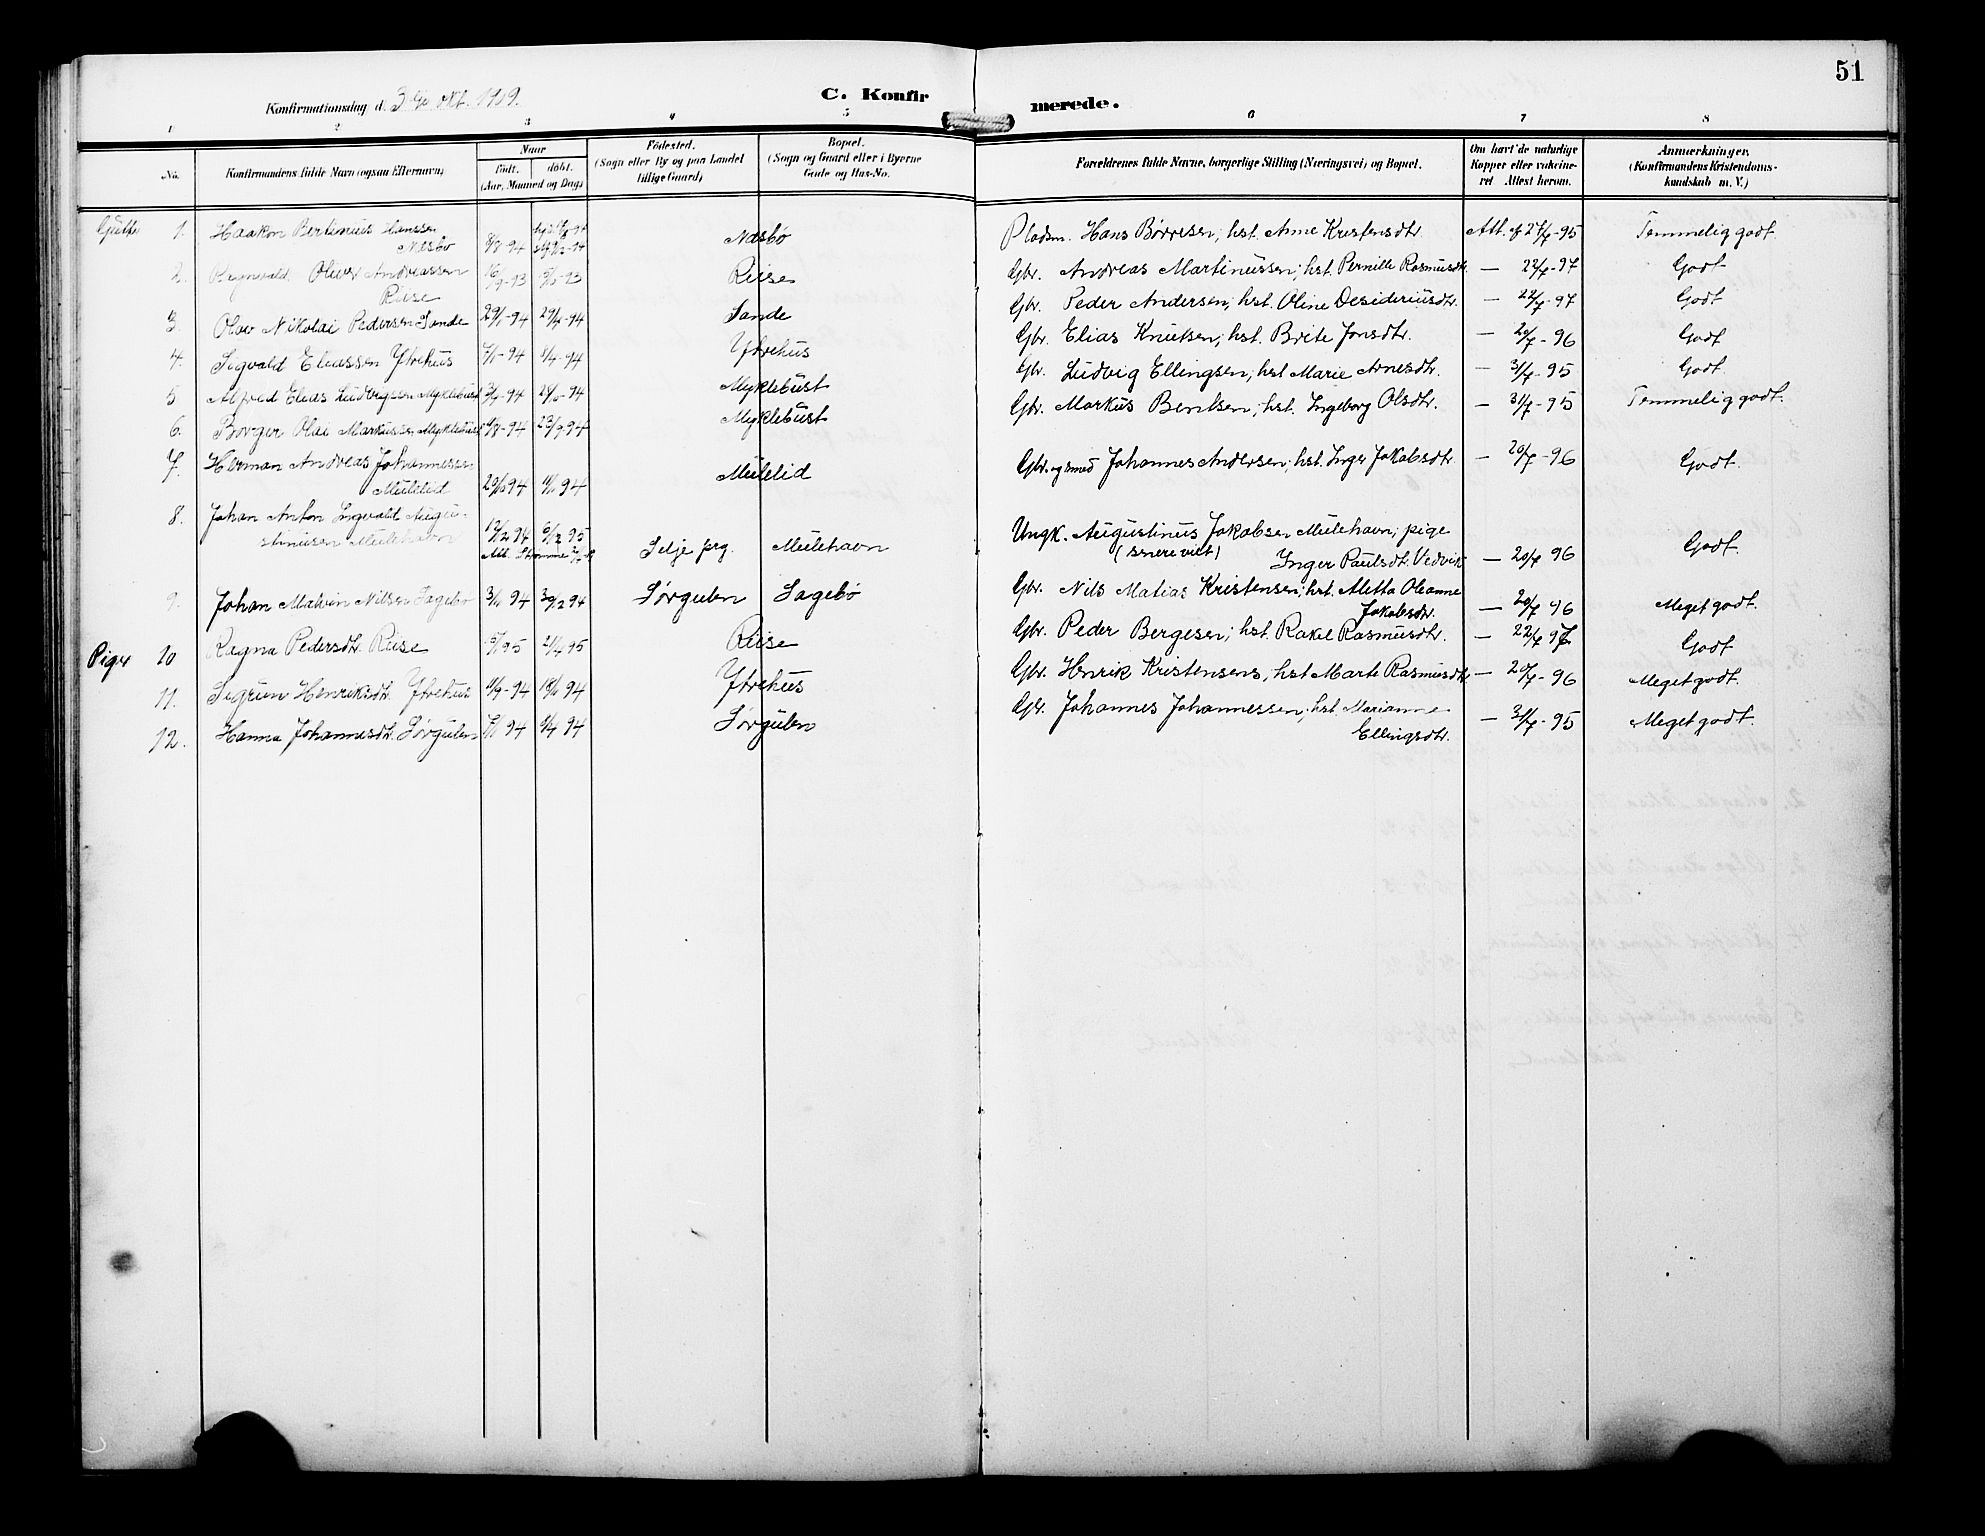 51
Konfirmationsdag d. 3 okt. 1909.
C. Konfirmerede.
1 2 3 4 5 6 7 8
No.
Konfirmandens fulde Navn (ogsaa Efternavn)
Naar
födt. döbt.
(Aar, Maaned og Dag)
Födested.
(Sogn eller By og paa Landet
tillige Gaard)
Bopæl.
(Sogn og Gaard eller i Byerne
Gade og Hus-No.
Forældrenes fulde Navne, borgerlige Stilling (Næringsvei) og Bopæl.
Om havt de naturlige
Kopper eller vakcine-
ret Attest herom.
Anmærkninger.
(Konfirmandens Kristendoms-
kundskab m. V.)
Gutter 1. Haakon Bertinius Hanssen
Næsbø 8/8-94 Næsbø Pladsm. Hans Børresen; hst. Anne Kristensdtr. Att. af 27/7-95 Temmelig godt.
2. Ragnvald Oliver Andreassen
Riise 16/9-93 Riise Gbr. Andreas Martinussen; hst. Pernille Rasmusdtr. — 22/7-97 Godt
3. Olav Nikolai Pedersen Sande 29/1-94 29/4-94 Sande Gbr. Peder Andersen; hst. Oline Desideriusdtr. — 22/7-97 Godt
4. Sigvald Eliassen Ytrehus 7/1-94 1/4-94 Ytrehus Gbr. Elias Knutsen; hst. Brite Jonsdtr. — 20/7-96 Godt
5 Alfred Elias Ludvigssen Myklebust 94 94 Myklebust Gbr. Ludvig Ellingsen; hst Marie Arnesdtr. — 31/7-95 Godt.
6. Borger Olai Markussen Myklebust 94 23/9 94 Myklebust Gbr. Markus Bentsen; hst. Ingeborg Olsdtr. — 31/7-95 Temmelig godt.
7. Herman Andreas Johannessen
Mulelid 94 94 Mulelid Gbr. og smed Johannes Andersen; hst. Inger Jakobsdtr — 20/7-96 Godt.
8. Johan Anton Ingvald Augu-
stinusen Mulehavn 12/12 94 95 Selje prg. Mulehavn Ungk. Augustinus Jakobsen Mulehavn; pige
(senere viet) Inger Paulsdtr. Vedvik — 20/7 96 Godt.
9. Johan Malvin Nilsen Sagebø 94 94 Sørgulen Sagebø Gbr. Nils Matias Kristensen; hst. Aletta Oleanne
Jakobsdtr. — 20/7 96 Meget godt.
Piger 10 Ragna Pedersdtr. Riise 95 2/4 95 Riise Gbr. Peder Bergesen; hst. Rakel Rasmusdtr. — 22/7 97 Godt
11. Sigrun Henriksdtr. Ytrehus 94 94 Ytrehus Gbr. Henrik Kristensens, hst Marte Rasmusdtr — 20/7-96 Meget godt.
12. Hanna Johannesdtr. Sørgulen 94 94 Sørgulen Gbr. Johannes Johannessen; hst. Marianne
Ellingsdtr. — 31/7-95 Meget godt.